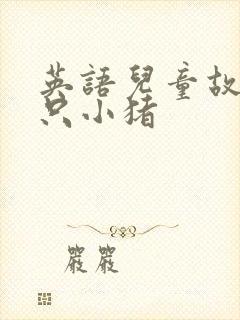 英語兒童故
只小猪
嚴嚴